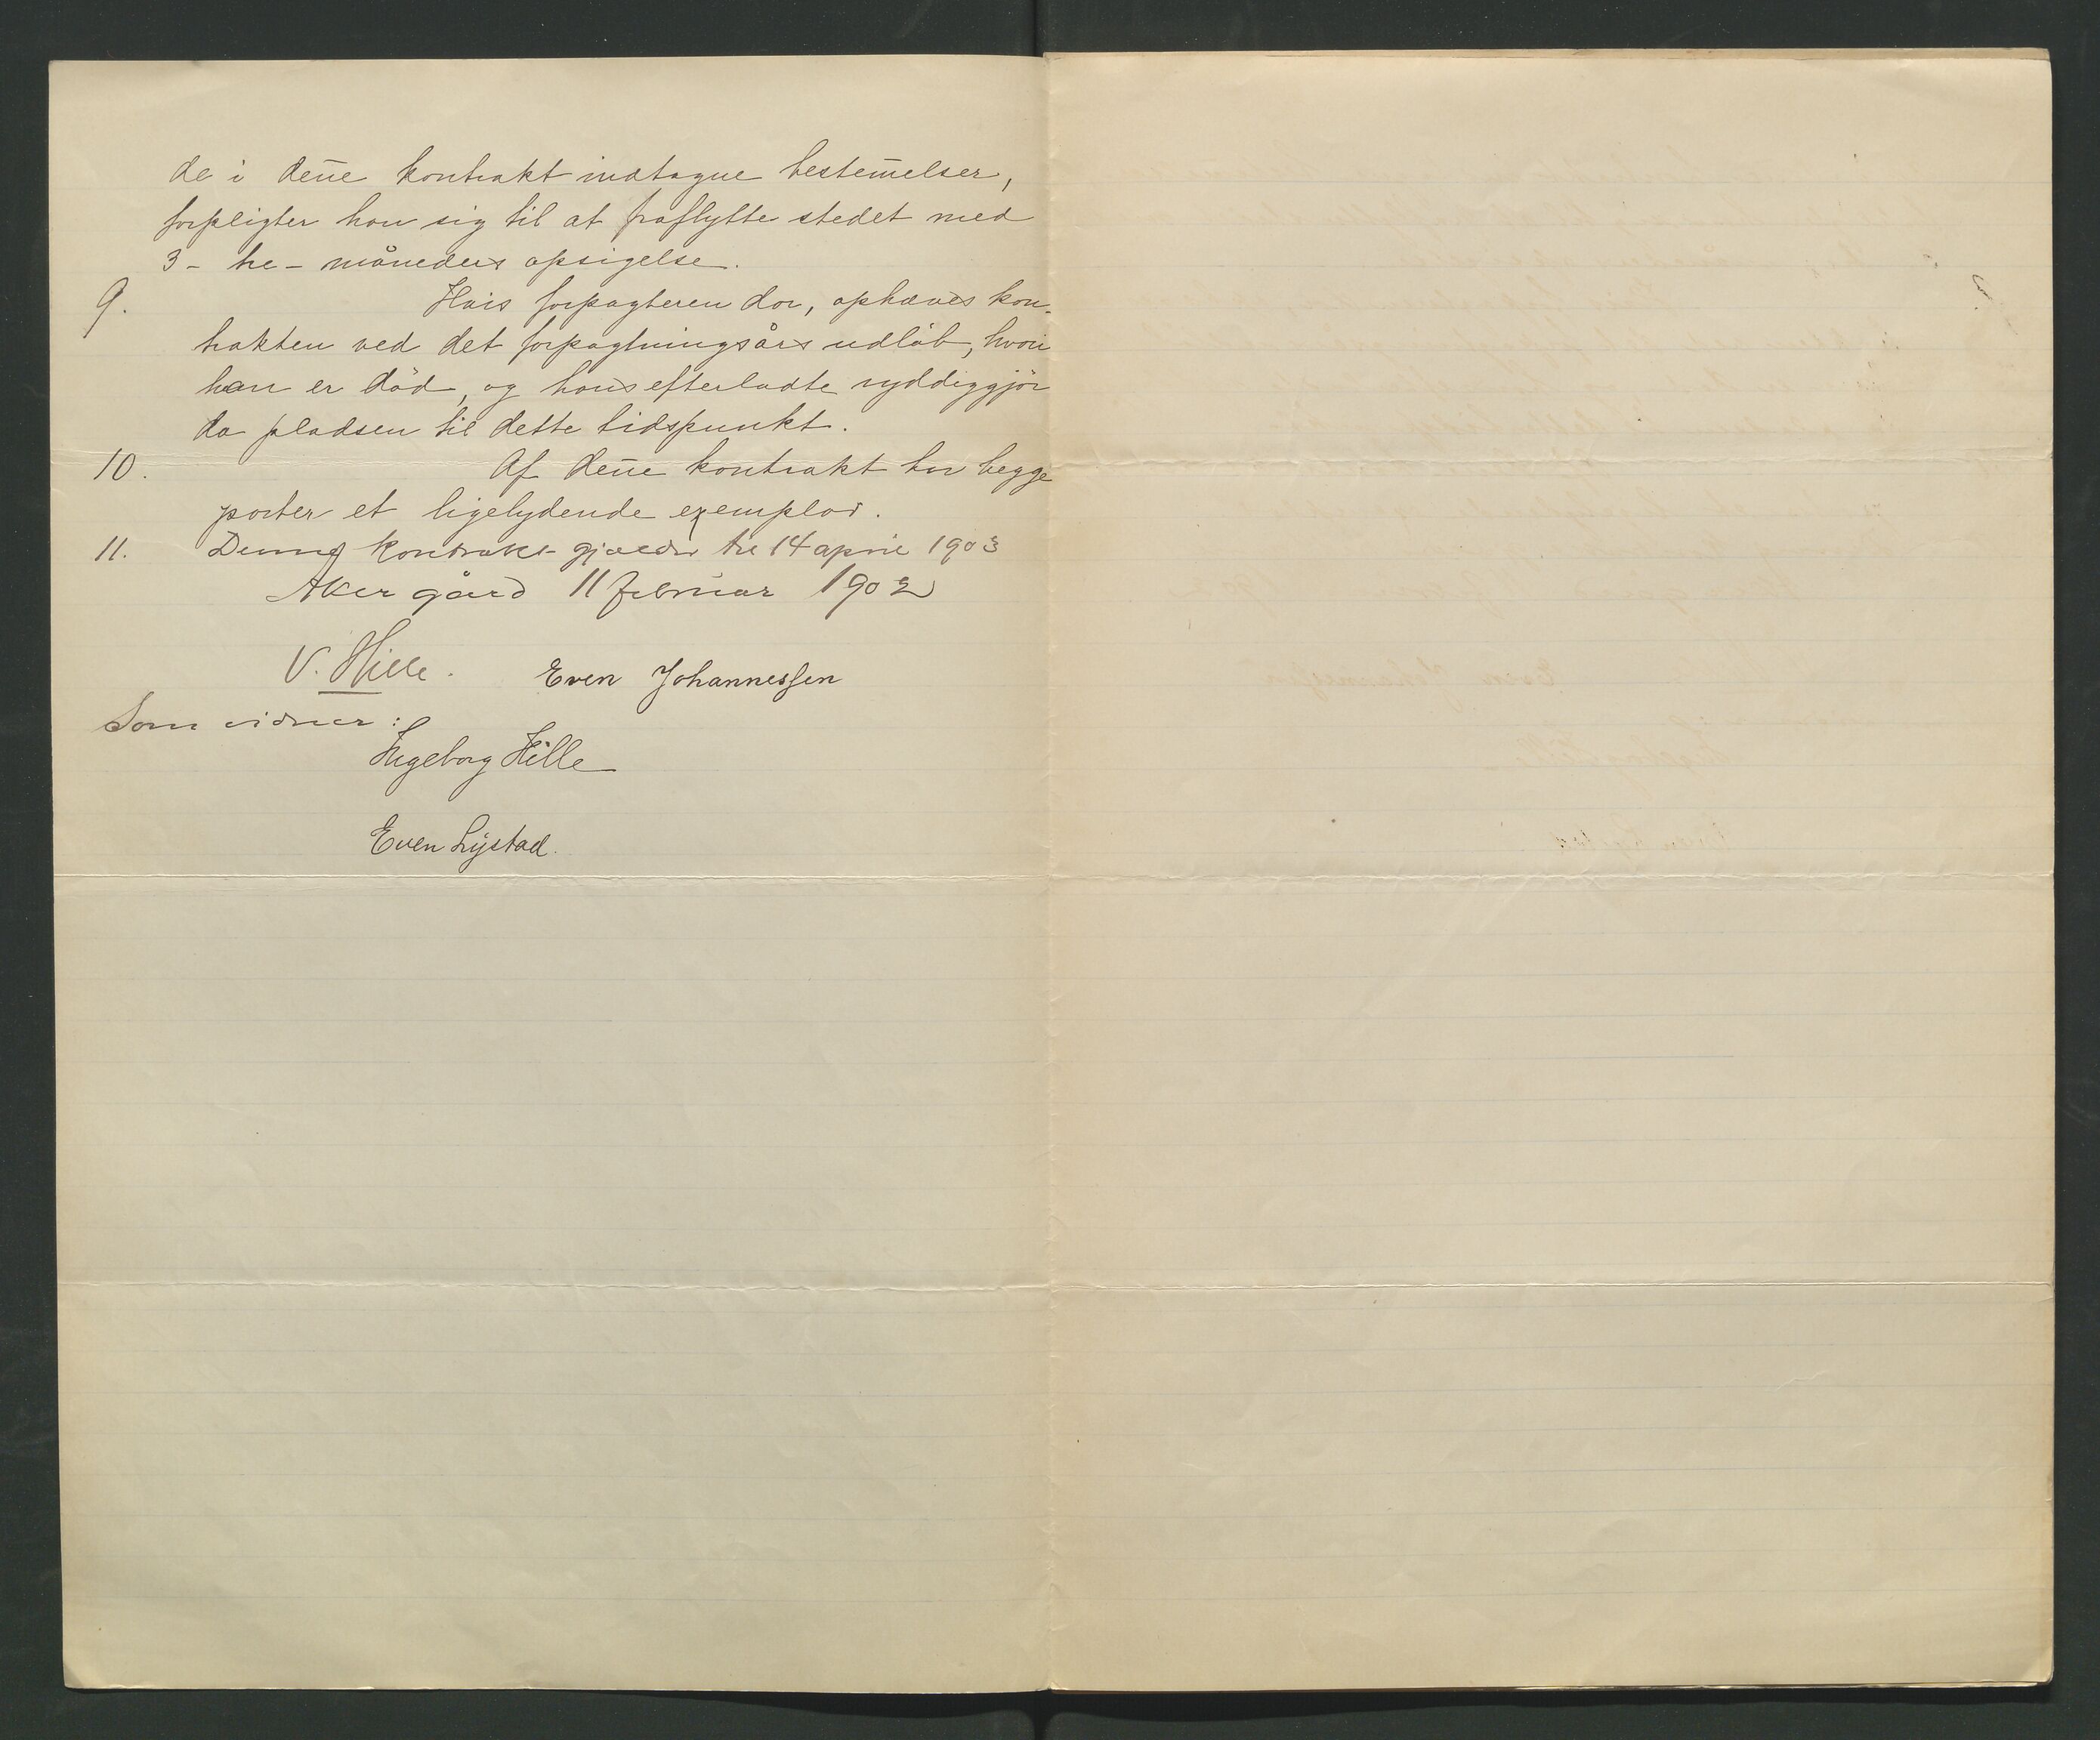 de i den̄e kontrakt indtagne bestem̄elser,
forpligter han sig til at fraflytte stedet med
3 - tre - måneders opsigelse.
9. Hvis forpagteren dør, ophæves kon-
trakten ved det forpagtningsårs udløb, hvori
han er död, og hans efterladte ryddiggjör
da pladsen til dette tidspunkt.
10. Af den̄e kontrakt har begge
parter et ligelydende exemplar.
11. Denne kontrakt gjælder til 14 april 1903
Aker gård 11 februar 1902
V. Hille. Even Johannesſen
Som vidner:
Ingeborg Hille
Even Lystad.